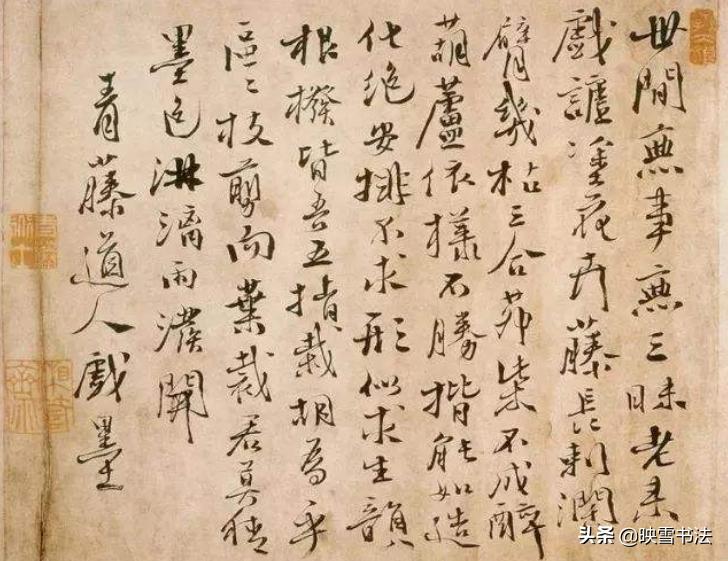 世間無事無三昧老來
戲謔塗花卉藤長刺闊
臂幾枯三合茅柴不成醉
葫蘆依樣不勝揩能如造
化絕安排不求形似求生韻
根撥皆吾五指栽胡為乎
區〻枝剪而葉裁君莫猜
墨色淋漓雨潑開
青藤道人戲墨
头条 @映雪书法